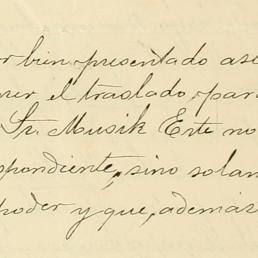 r bien presentado ase
rer el traslado para
Sr. Musik Erte no
pondiente, sino solam
poder y que, además